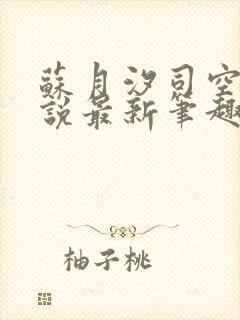 蘇月汐司空
說最新筆趣
柚子桃